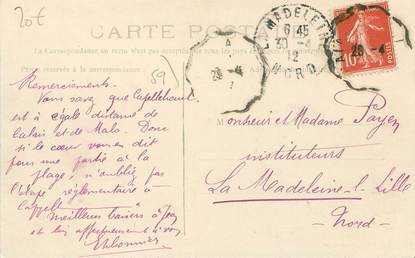 20€
CARTE POSTALE
La Correspondance au recto n'est pas acceptée par tous les pays
réservé à la correspondance
LA MADELEINE
6 45
30 -4
12
NORD
28 -4
10
POSTES
59)
Remerciements.
Vous savez que Cappellehouck
est à égale distance de
Calais et de Malo. Donc
si le cœur vous en dit
pour une partie à la
plage, n'oubliez pas
l'étape réglementaire à
Cappelle
Meilleurs baisers à
et bien affectueusement à vous
Monsieur et Madame Payen
instituteurs
La Madeleine-l-Lille
Nord